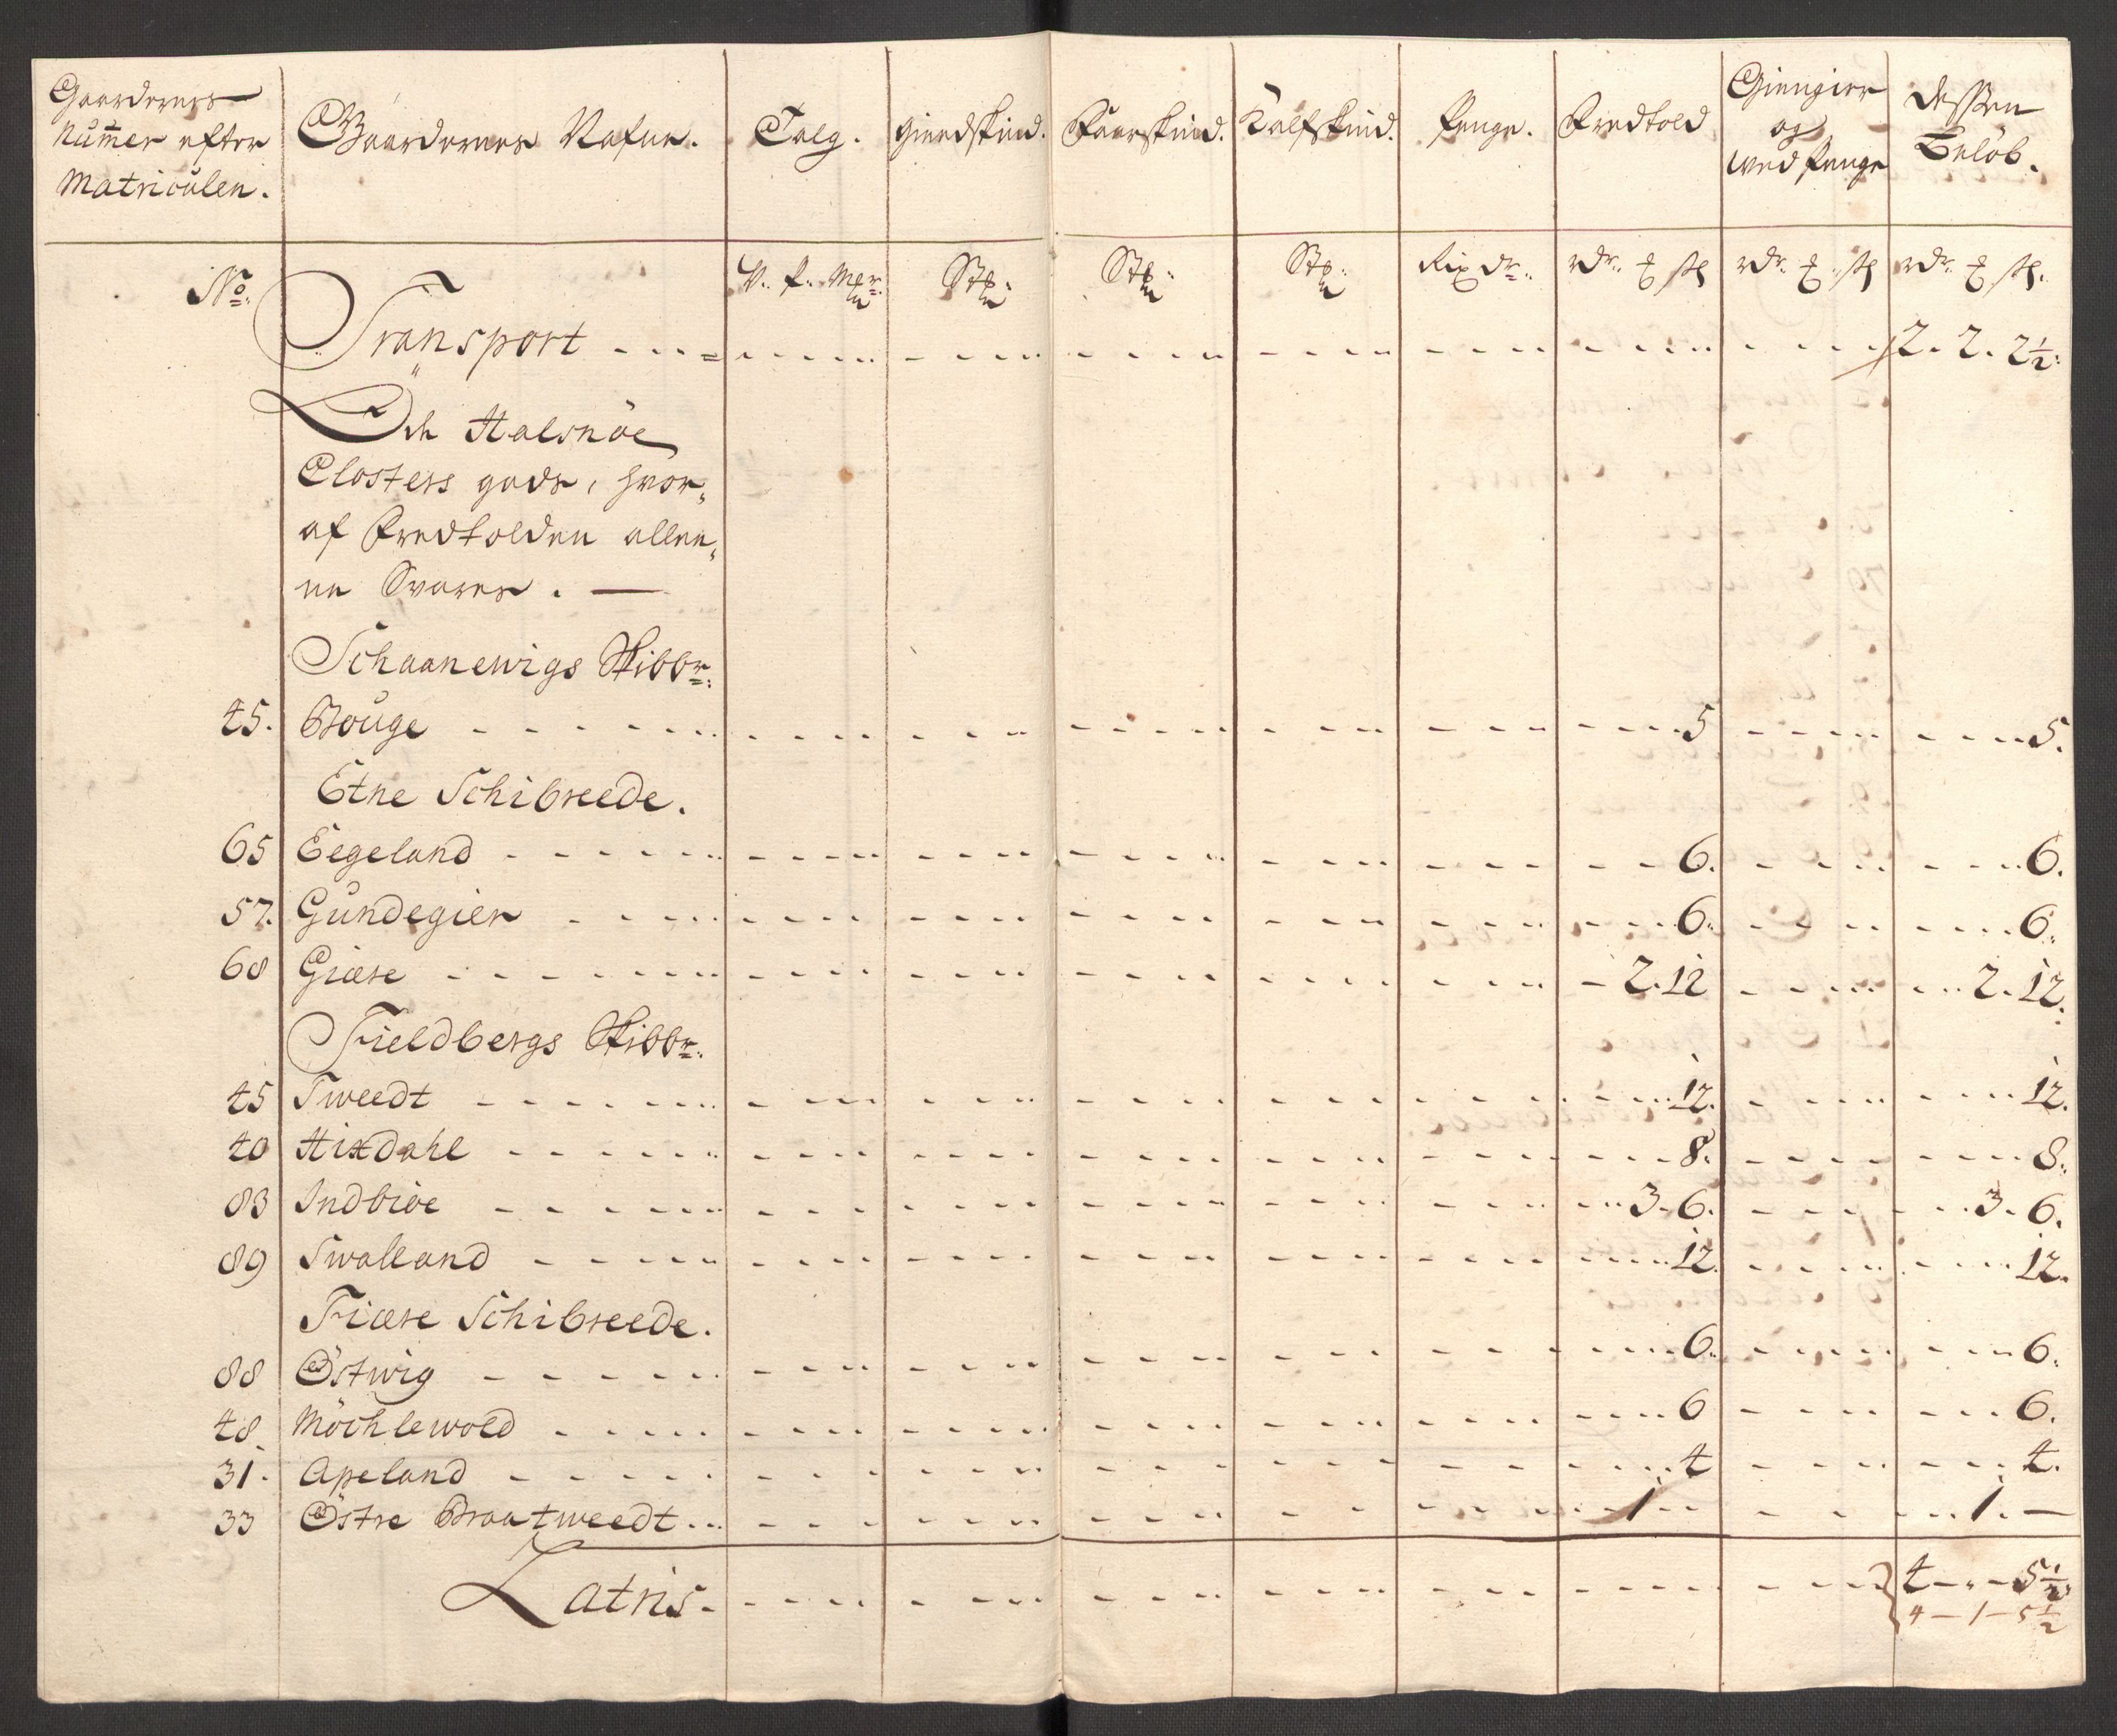 Gaardernes Numer efter Matriculen.
Gaardernes Nafne.
Talg.
Giedskind.
Faarskind.
Kalfskind.
Penge.
Fredtold
Giengier og wed Penge
Dessen Beløb.
No.
V. P. Mrr.
Stk:
Stk:
Stk:
Rixdr.
rdr. ꝥ sh
rdr. ꝥ sh
rdr. ꝥ sh.
Transport - - - - 2. 2. 2½.
Och Halsnöe
Closters gods, hvor,
af Fredtolden allen,
ne Svares. —
Schaanewigs Skibbr:
45. Bouge - - - - 5 - - - - 5.
Etne Schibreede.
65 Eegeland - - - - 6. - - - - 6.
57. Gundegier - - - - 6. - - - - 6.
68 Giære - - - - 2. 12 - - - - 2. 12.
Fieldbergs Skibbr:
45 Tweedt - - - - 12. - - - - 12.
40 Hixdahl - - - - 8. - - - - 8.
83 Indbiøe - - - - 3. 6. - - - - 3. 6.
89 Swalland - - - - 12. - - - - 12.
Fiære Schibreede.
88 Östwig - - - - 6. - - - - 6.
48. Möchlewold - - - - 6 - - - - 6.
31. Apeland - - - - 4 - - - - 4.
33 Östre Braatweedt - - - - 1 - - - - 1. —
Latris. - - - - 4 - „ - 5½
4 - 1 - 5½